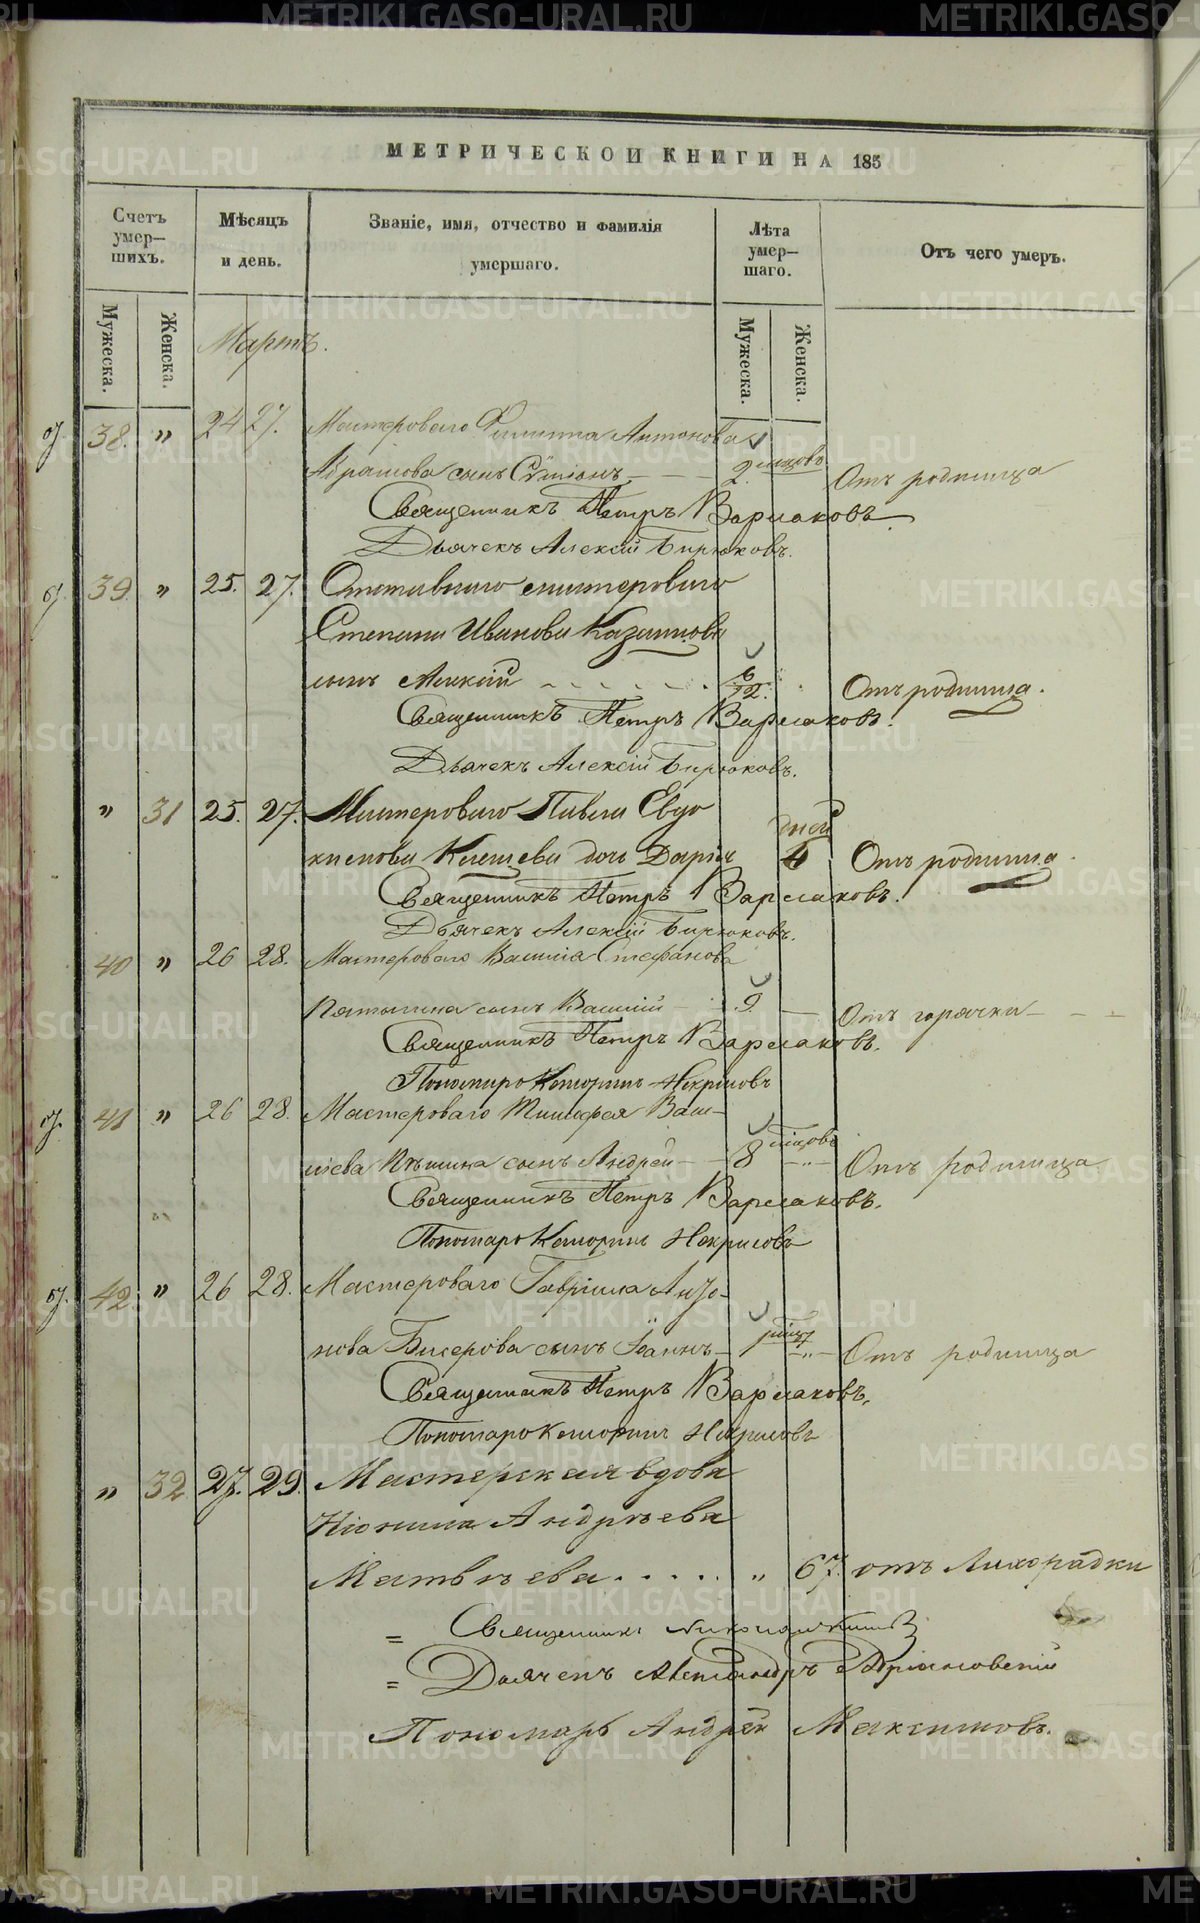 МЕТРИЧЕСКОЙ КНИГИ НА 185
Счетъ умер-шихъ.
Мужеска.
Женска.
Мѣсяцъ и день.
Званіе, имя, отчество и фамилія умершаго.
Лѣта умер-шаго.
Мужеска.
Женска.
Отъ чего умеръ.
Мартъ.
38. " 24 27. Мастероваго Филиппа Антонова
Абрамова сынъ Сѵмеонъ 2 мѣсяцовъ Отъ родимца
Священникъ Петръ Варлаковъ
Дьячекъ Алексій Бирюковъ.
39. " 25. 27. Отставнаго мастероваго
Степана Иванова Казанцова
сынъ Алексій 6/12. Отъ родимца.
Священникъ Петръ Варлаковъ.
Дьячекъ Алексій Бирюковъ.
" 31 25. 27. Мастероваго Павла Евдо
кимова Клещева дочь Дарія дней 4 Отъ родимца.
Священникъ Петръ Варлаковъ.
Дьячекъ Алексій Бирюковъ.
40 " 26 28. Мастероваго Василія Стефанова
сынъ Василій 9. Отъ горячки
Священникъ Петръ Варлаковъ.
Пономарь Некрасовъ
41 " 26 28. Мастероваго Тимофея Васи-
ліева сынъ Андрей 8 мѣсяцовъ Отъ родимца.
Священникъ Петръ Варлаковъ.
Пономарь Некрасовъ
42. " 26 28. Мастероваго Гавріила
нова Бисерова сынъ Іоаннъ 1 Отъ родимца
Священникъ Петръ Варлаковъ.
Пономарь Некрасовъ
" 32 27. 29. Мастерская вдова
Андрѣева
Матвѣева . . . . . " 67. отъ Лихорадки
= Священникъ
= Дьячекъ Александръ Адріановскій
Пономарь Андрей Максимовъ.
METRIKI.GASO-URAL.RU